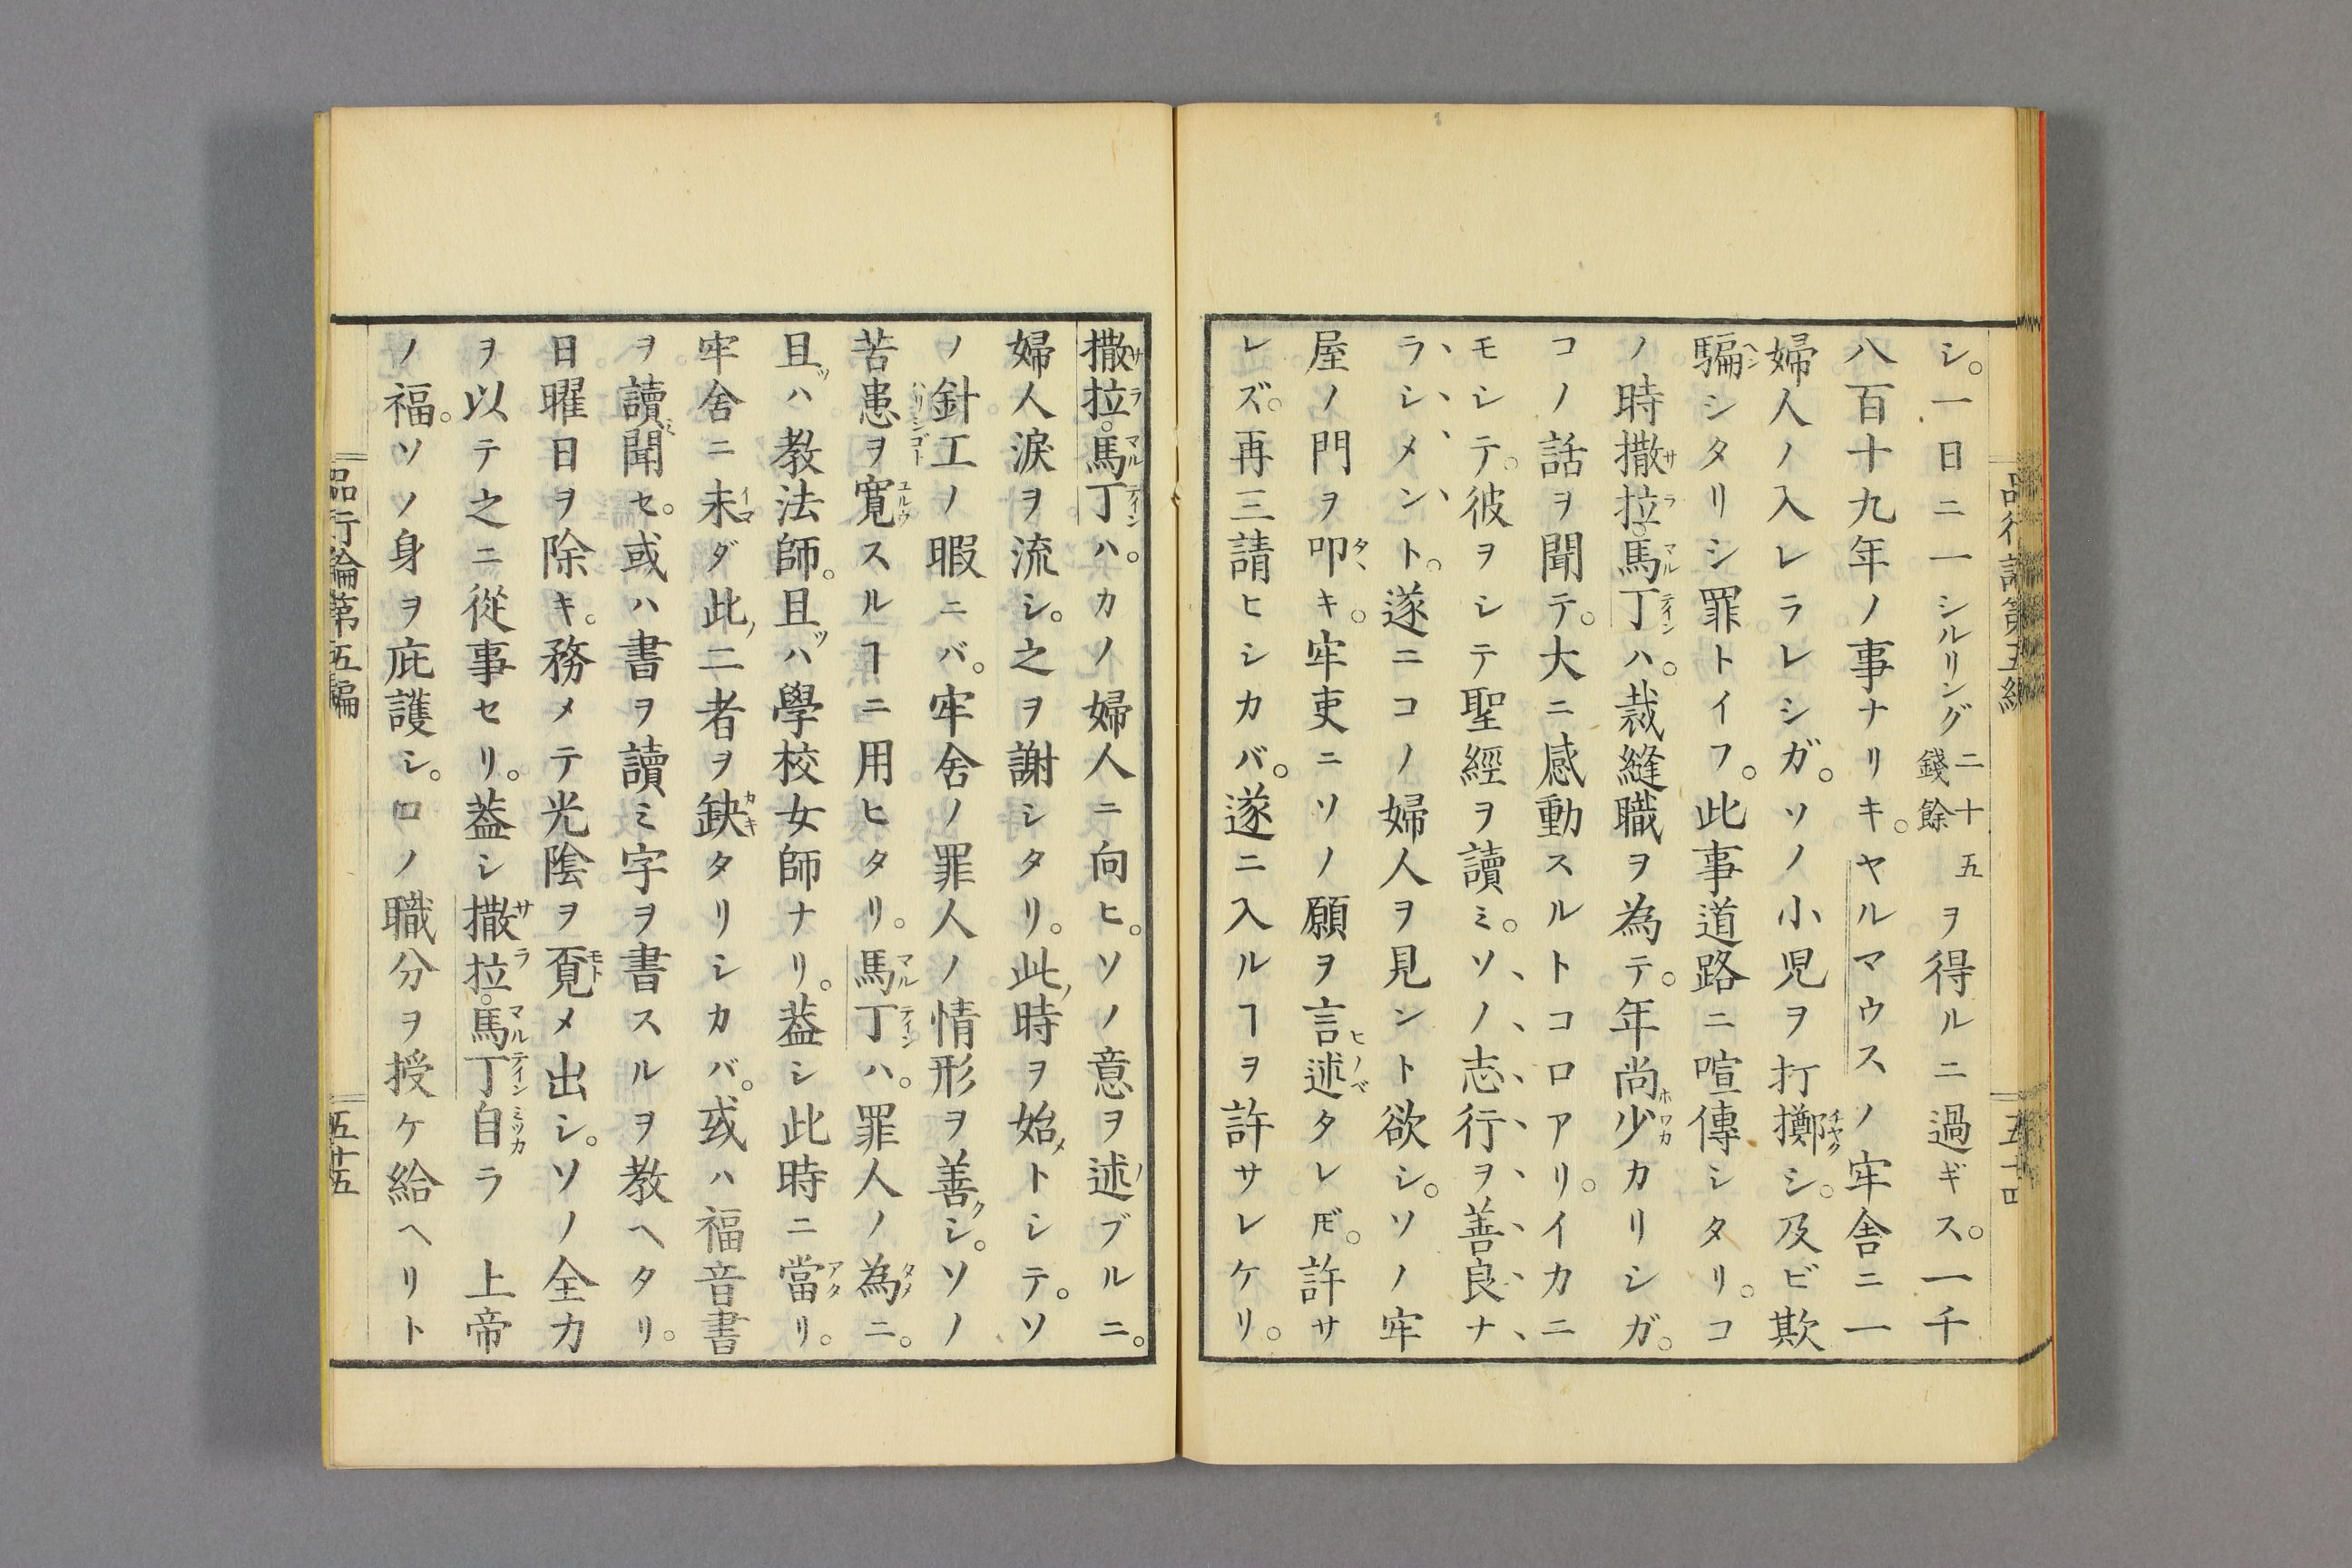 シ。一日ニ一シルリング二十五錢餘ヲ得ルニ過ギス。一千
八百十九年ノ事ナリキ。ヤルマウスノ牢舍ニ一
婦人ノ入レラレシガ。ソノ小児ヲ打擲シ。及ビ欺
騙シタリシ罪トイフ。此事道路ニ喧傳シタリ。コ
ノ時撒拉。馬丁ハ。裁縫職ヲ為テ。年尚少カリシガ。
コノ話ヲ聞テ。大ニ感動スルトコロアリ。イカニ
モシテ。彼ヲシテ聖經ヲ讀ミ。ソノ志行ヲ善良ナ
ラシメント。遂ニコノ婦人ヲ見ント欲シ。ソノ牢
屋ノ門ヲ叩キ。牢吏ニソノ願ヲ言述タレ𪜈。許サ
レズ。再三請ヒシカバ。遂ニ入ルヿヲ許サレケリ。
撒拉。馬丁ハ。カノ婦人ニ向ヒ。ソノ意ヲ述ブルニ。
婦人淚ヲ流シ。之ヲ謝シタリ。此時ヲ始トシテ。ソ
ノ針工ノ暇ニバ。牢舍ノ罪人ノ情形ヲ善シ。ソノ
苦患ヲ寛スルヿニ用ヒタリ。馬丁ハ。罪人ノ為ニ。
且ハ教法師。且ハ學校女師ナリ。葢シ此時ニ當リ。
牢舍ニ未ダ此二者ヲ缺タリシカバ。或ハ福音書
ヲ讀聞セ。或ハ書ヲ讀ミ字ヲ書スルヲ教ヘタリ。
日曜日ヲ除キ。務メテ光陰ヲ覔メ出シ。ソノ全力
ヲ以テ之ニ從事セリ。葢シ撒拉。馬丁自ラ　上帝
ノ福。ソノ身ヲ庇護シ。コノ職分ヲ授ケ給ヘリト
品行論第五編
五十五